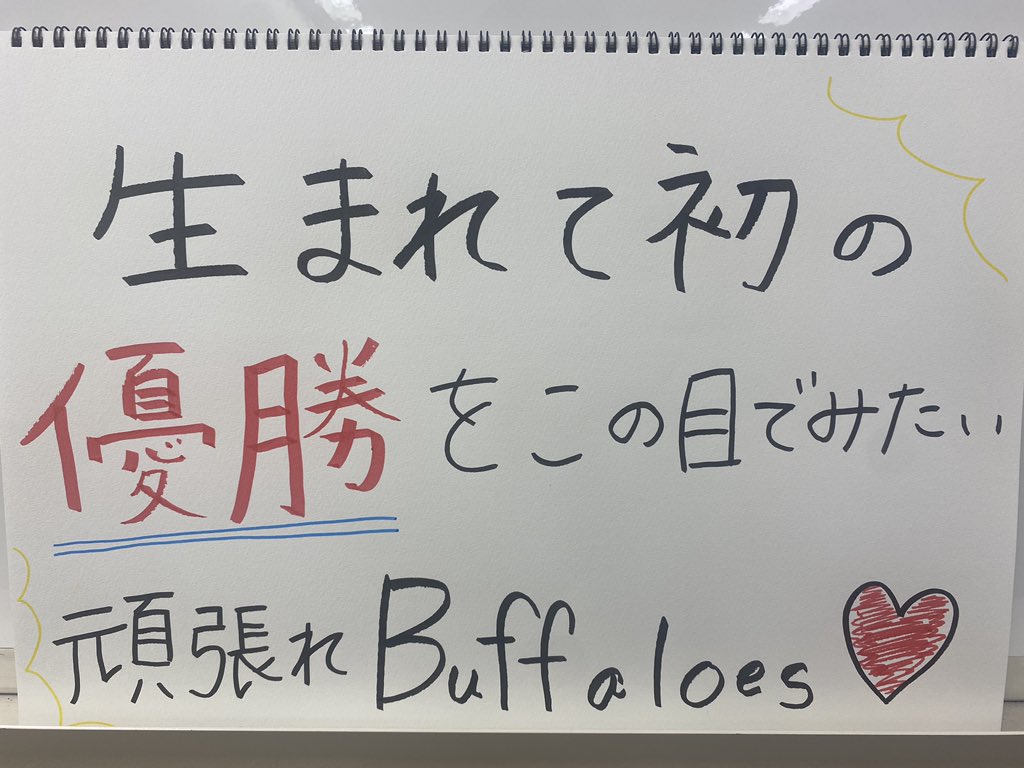 生まれて初の
優勝をこの目でみたい
頑張れBuffaloes